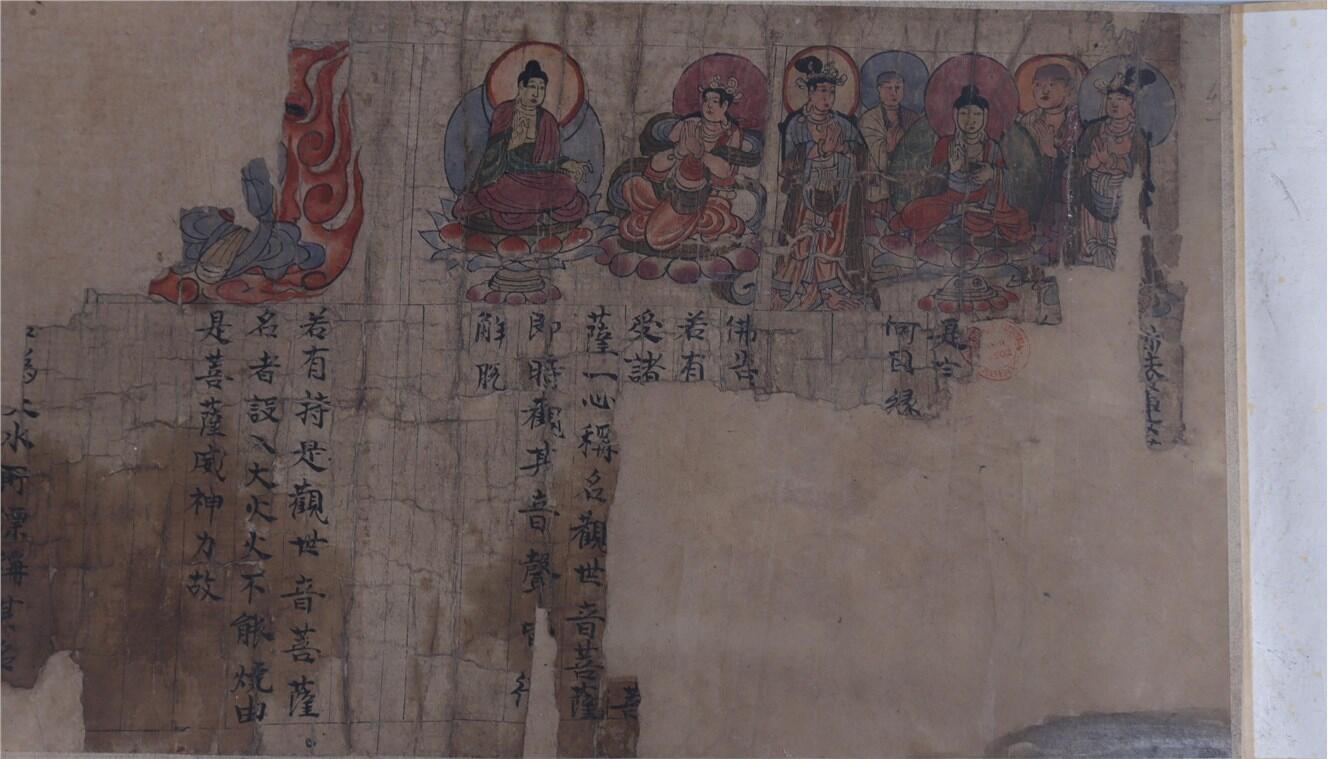 是世
何因緣
佛告
若有
受諸
菩
薩一心稱名觀世音菩薩
即時觀其音聲皆
解脫
若有持是觀世音菩薩
名者設入大火火不能燒由
是菩薩威神力故
大水所漂稱其名